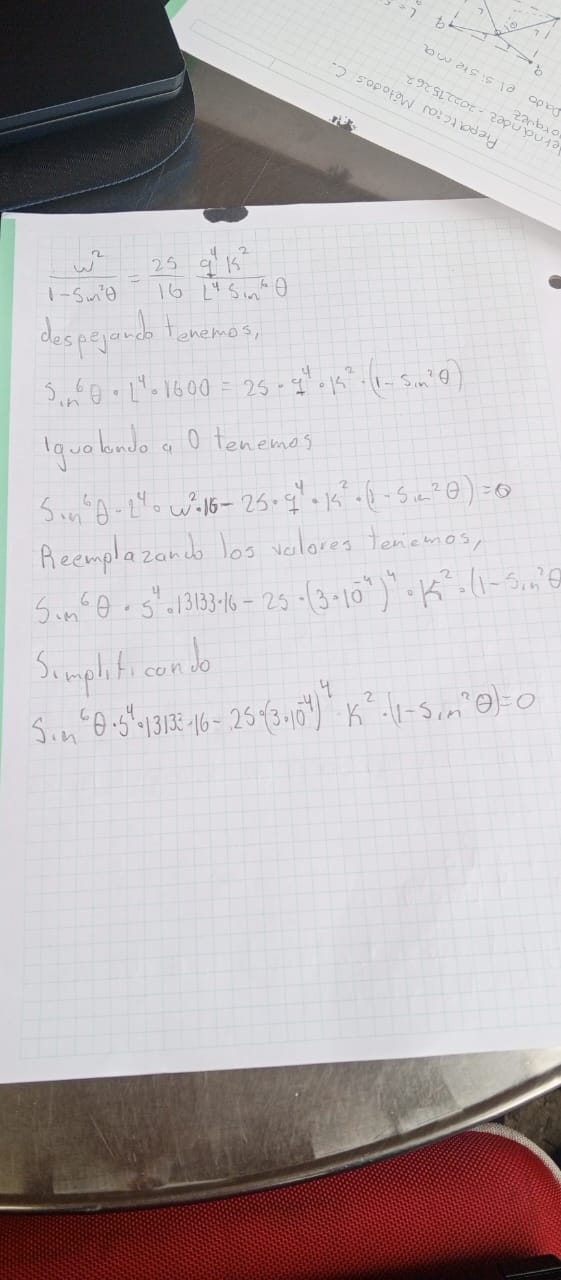 Preparcial Métodos C.
- 202215262
Dado el sistema
q
θ
L
L
q
L =
w² / 1-Sin²θ = 25/16 q⁴ K² / L⁴ Sin⁶θ
despejando tenemos,
Sin⁶θ • L⁴ • 1600 = 25 • q⁴ • K² • (1 - Sin²θ)
Igualando a 0 tenemos
Sin⁶θ • L⁴ • w² • 16 - 25 • q⁴ • K² • (1 - Sin²θ) = 0
Reemplazando los valores tenemos,
Sin⁶θ • 5⁴ • 13133 • 16 - 25 • (3 • 10⁻⁴)⁴ • K² • (1 - Sin²θ
Simplificando
Sin⁶θ • 5⁴ • 13133 • 16 - 25 • (3 • 10⁻⁴)⁴ • K² • (1 - Sin²θ) = 0